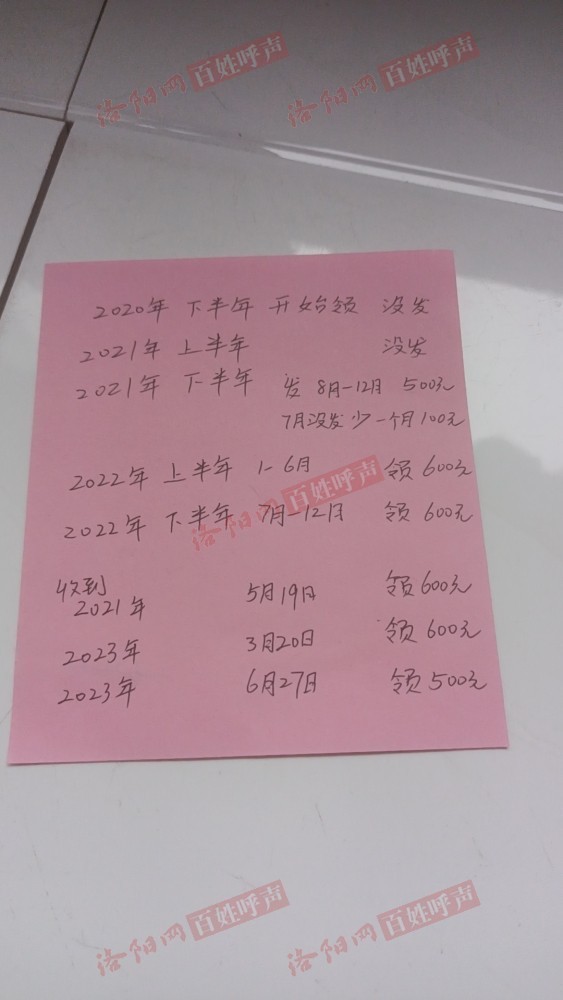 洛阳网 百姓呼声 洛阳网 百姓呼声
2020年 下半年 开始领 没发
2021年 上半年 没发
2021年 下半年 发 8月-12月 500元
7月没发少一个月100元
2022年 上半年 1-6月 领 600元
洛阳网 百姓呼声
2022年 下半年 7月-12月 领 600元
收到
2021年 5月19日 领600元
2023年 3月20日 领 600元
2023年 6月27日 领 500元
洛阳网 百姓呼声 洛阳网 百姓呼声